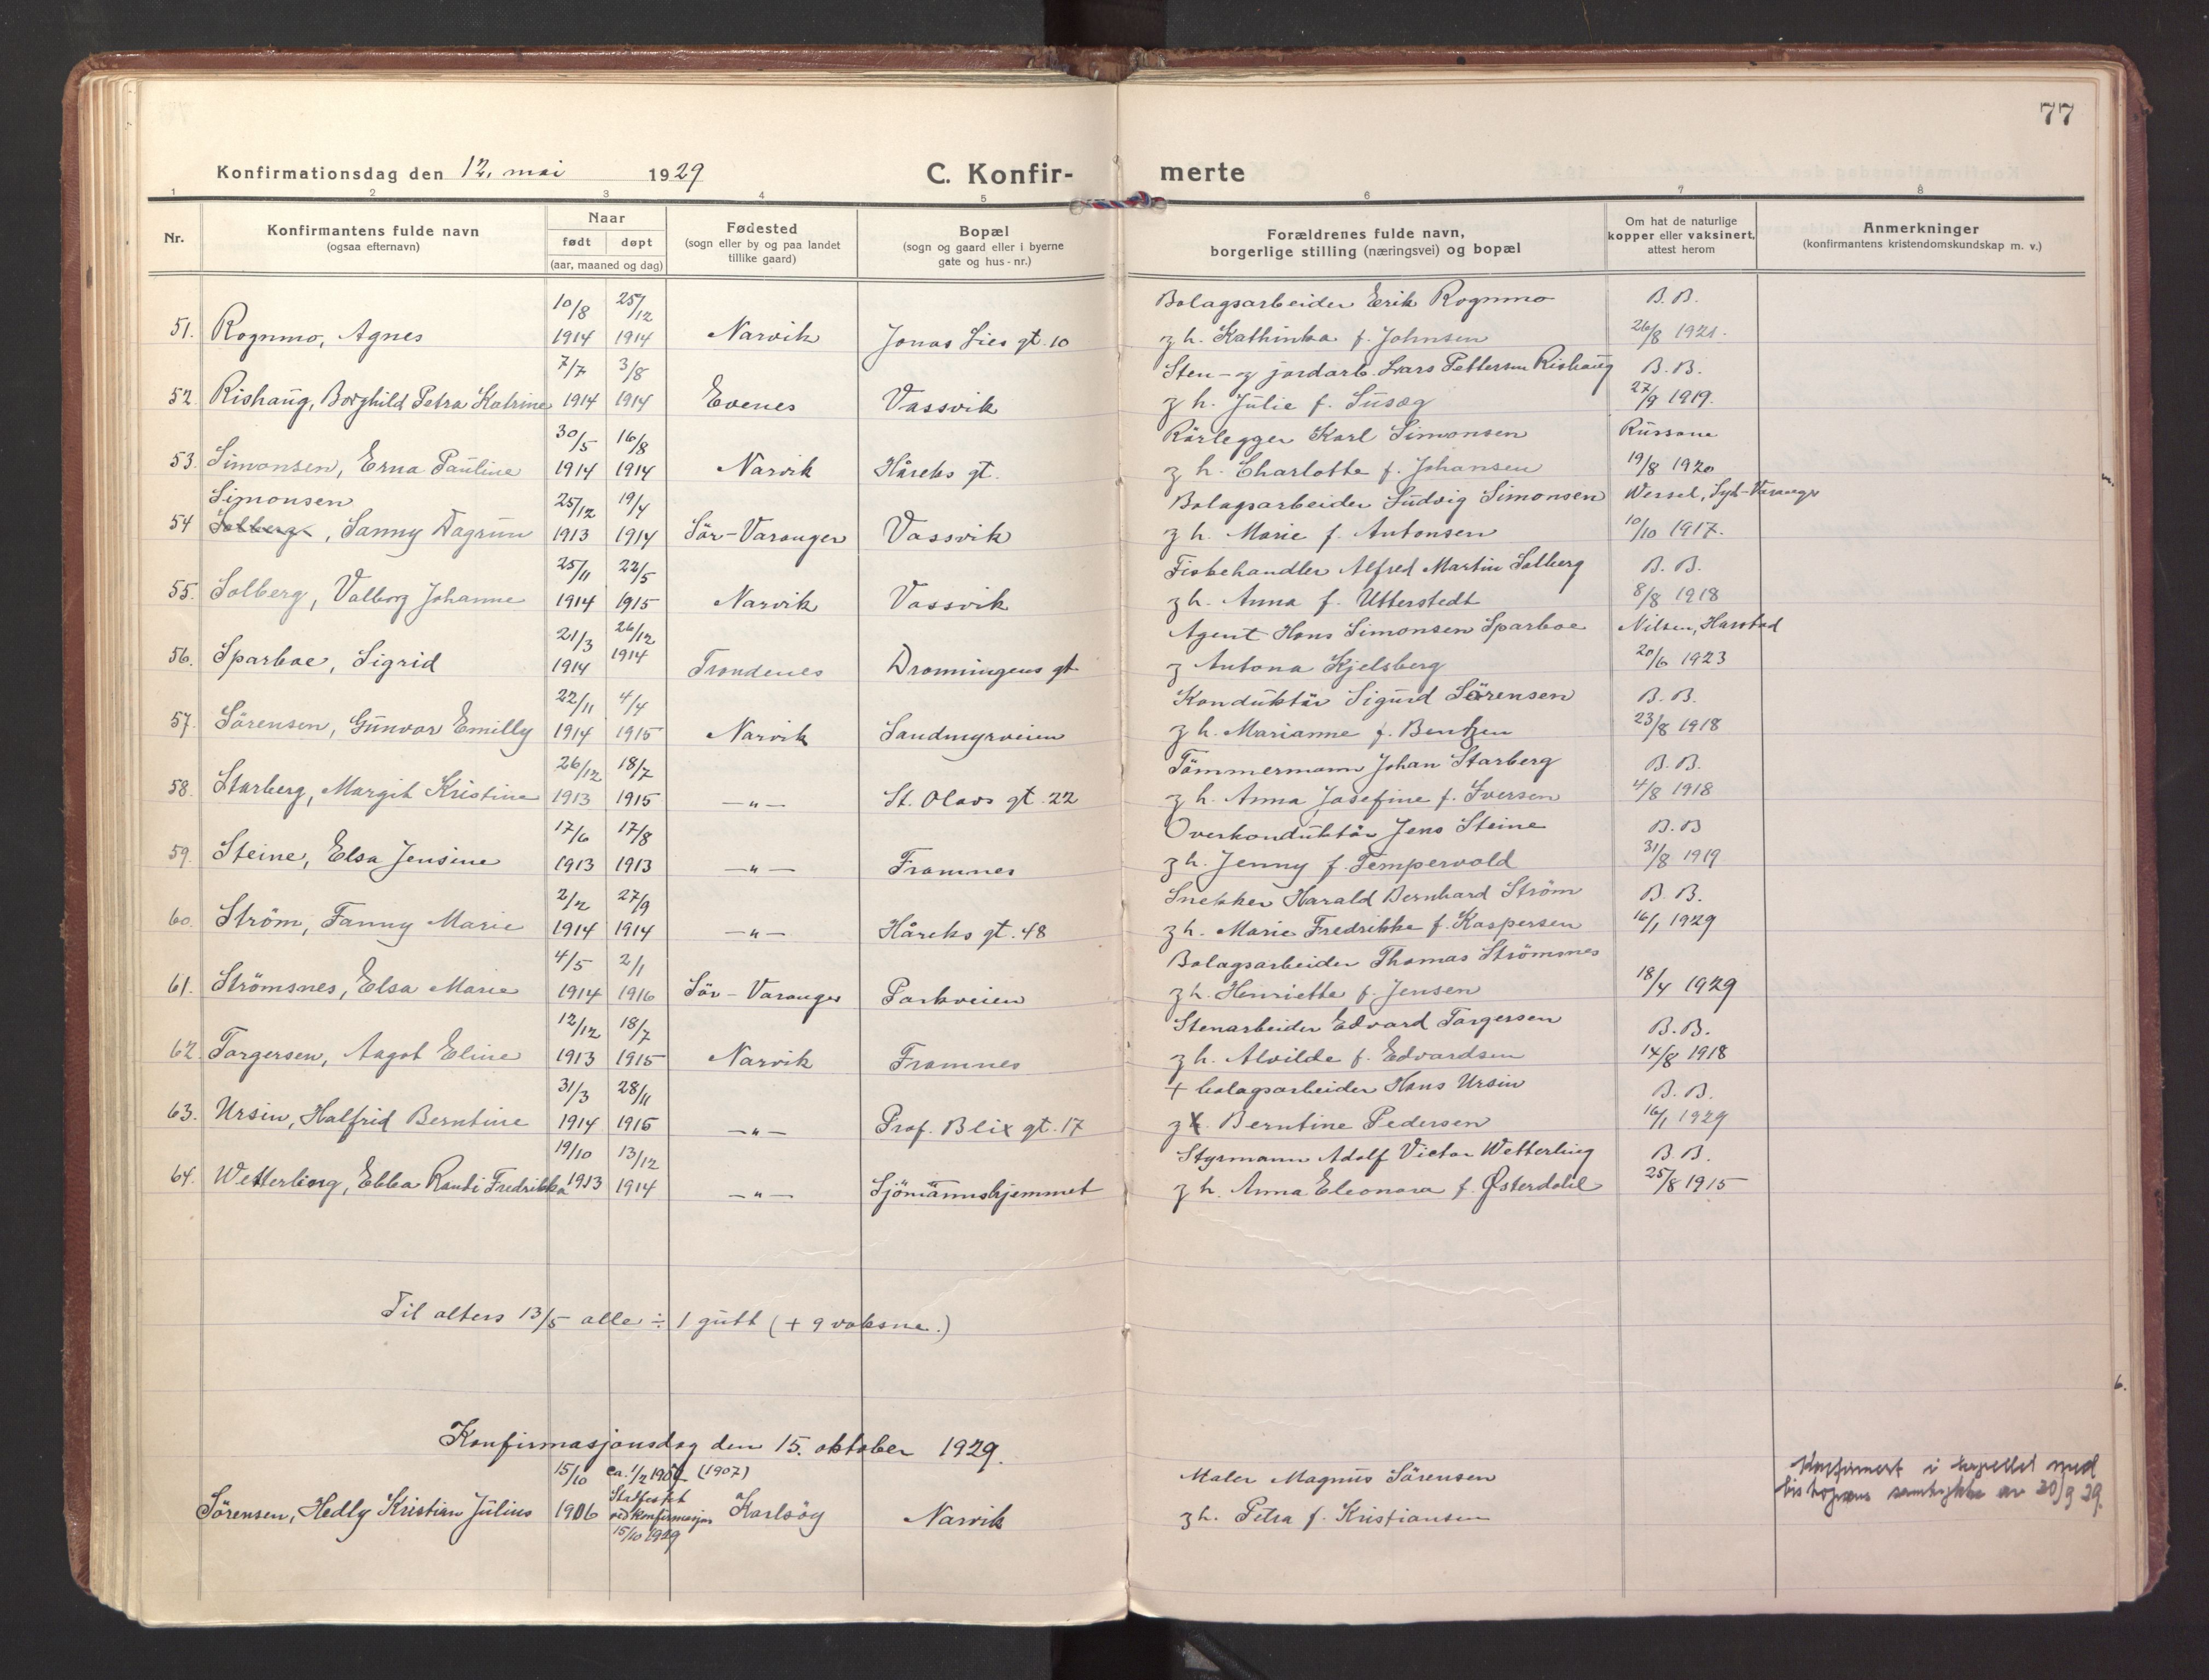 77
Konfirmationsdag den 12. mai 1929 C. Konfir- merte
1 2 3 4 5 6 7 8
Nr. Konfirmantens fulde navn (ogsaa efternavn) Naar født døpt (aar, maaned og dag) Fødested (sogn eller by og paa landet tillike gaard) Bopæl (sogn og gaard eller i byerne gate og hus-nr.) Forældrenes fulde navn, borgerlige stilling (næringsvei) og bopæl Om hat de naturlige kopper eller vaksinert, attest herom Anmerkninger (konfirmantens kristendomskundskap m. v.)
10/8 25/12 Bolagsarbeider Erik Rognmo B. B.
51. Rognmo, Agnes 1914 1914 Narvik Jonas Lies gt. 10 og h. Kathinka f. Johnsen 26/8 1921.
7/7 3/8 Sten- og jordarb. Lars Pettersen Rishaug B. B.
52. Rishaug, Borghild Petra Katrine 1914 1914 Evenes Vassvik og h. Julie f. Susæg 27/9 1919.
30/5 16/8 Rörlegger Karl Simonsen Russane
53. Simonsen, Erna Pauline 1914 1914 Narvik Håreks gt. og h. Charlotte f. Johansen 19/8 1920
Simonsen 25/12 19/4 Bolagsarbeider Ludvig Simonsen Wessel, Syd-Varanger
54 Solberg, Sanny Dagrun 1913 1914 Sör-Varanger Vassvik og h. Marie f. Antonsen 10/10 1917.
25/11 22/5 Fiskehandler Alfred Martin Solberg B. B.
55. Solberg, Valborg Johanne 1914 1915 Narvik Vassvik og h. Anna f. Utterstedt 8/8 1918
21/3 26/12 Agent Hans Simonsen Sparboe Nilsen, Harstad
56. Sparboe, Sigrid 1914 1914 Trondenes Dronningens gt og Antona Kjelsberg 20/6 1923
22/11 4/4 Konduktör Sigurd Sörensen B. B.
57. Sörensen, Gunvor Emilly 1914 1915 Narvik Sandmyrveien og h. Marianne f. Bentzen 23/8 1918
26/12 18/7 Tömmermann Johan Starberg B. B.
58. Starberg, Margit Kristine 1913 1915 —"— St. Olavs gt. 22 og h. Anna Josefine f. Iversen 4/8 1918
17/6 17/8 Overkonduktör Jens Steine B. B
59. Steine, Elsa Jensine 1913 1913 —"— Framnes og h. Jenny f. Tempervold 31/8 1919
2/2 27/9 Snekker Harald Bernhard Ström B. B.
60. Ström, Fanny Marie 1914 1914 —"— Håreks gt. 48 og h. Marie Fredrikke f. Kaspersen 16/1 1929
4/5 2/1 Bolagsarbeider Thomas Strömmes
61. Strömsnes, Elsa Marie 1914 1916 Sör-Varanger Parkveien og h. Henriette f. Jensen 18/4 1929
12/12 18/7 Stenarbeider Edvard Torgersen B. B.
62. Torgersen, Aagot Eline 1913 1915 Narvik Framnes og h. Alvilde f. Edvardsen 14/8 1918
31/3 28/11 + bolagsarbeider Hans Ursin B. B.
63. Ursin, Halfrid Berntine 1914 1915 —"— Prof. Blix gt. 17 og h. Berntine Pedersen 16/1 1929
19/10 13/12 Styrmann Adolf Victor Wetterling B. B.
64. Wetterling, Ebba Randi Fredrikka 1913 1914 —"— Sjömannshjemmet og h. Anna Eleonora f. Østerdahl 25/8 1915
Til alters 13/5 alle ÷ 1 gutt (+ 9 voksne.)
6.
Konfirmasjonsdag den 15. oktober 1929.
15/10 ca. 1/2 1907 (1907) Maler Magnus Sörensen Konfirmert i kapellet med
Sörensen, Hedly Kristian Julius 1906 Stadfestet ved konfirmasjon 15/10 1929 Karlsöy Narvik og h. Petra f. Kristiansen biskopens samtykke av 20/9 29.